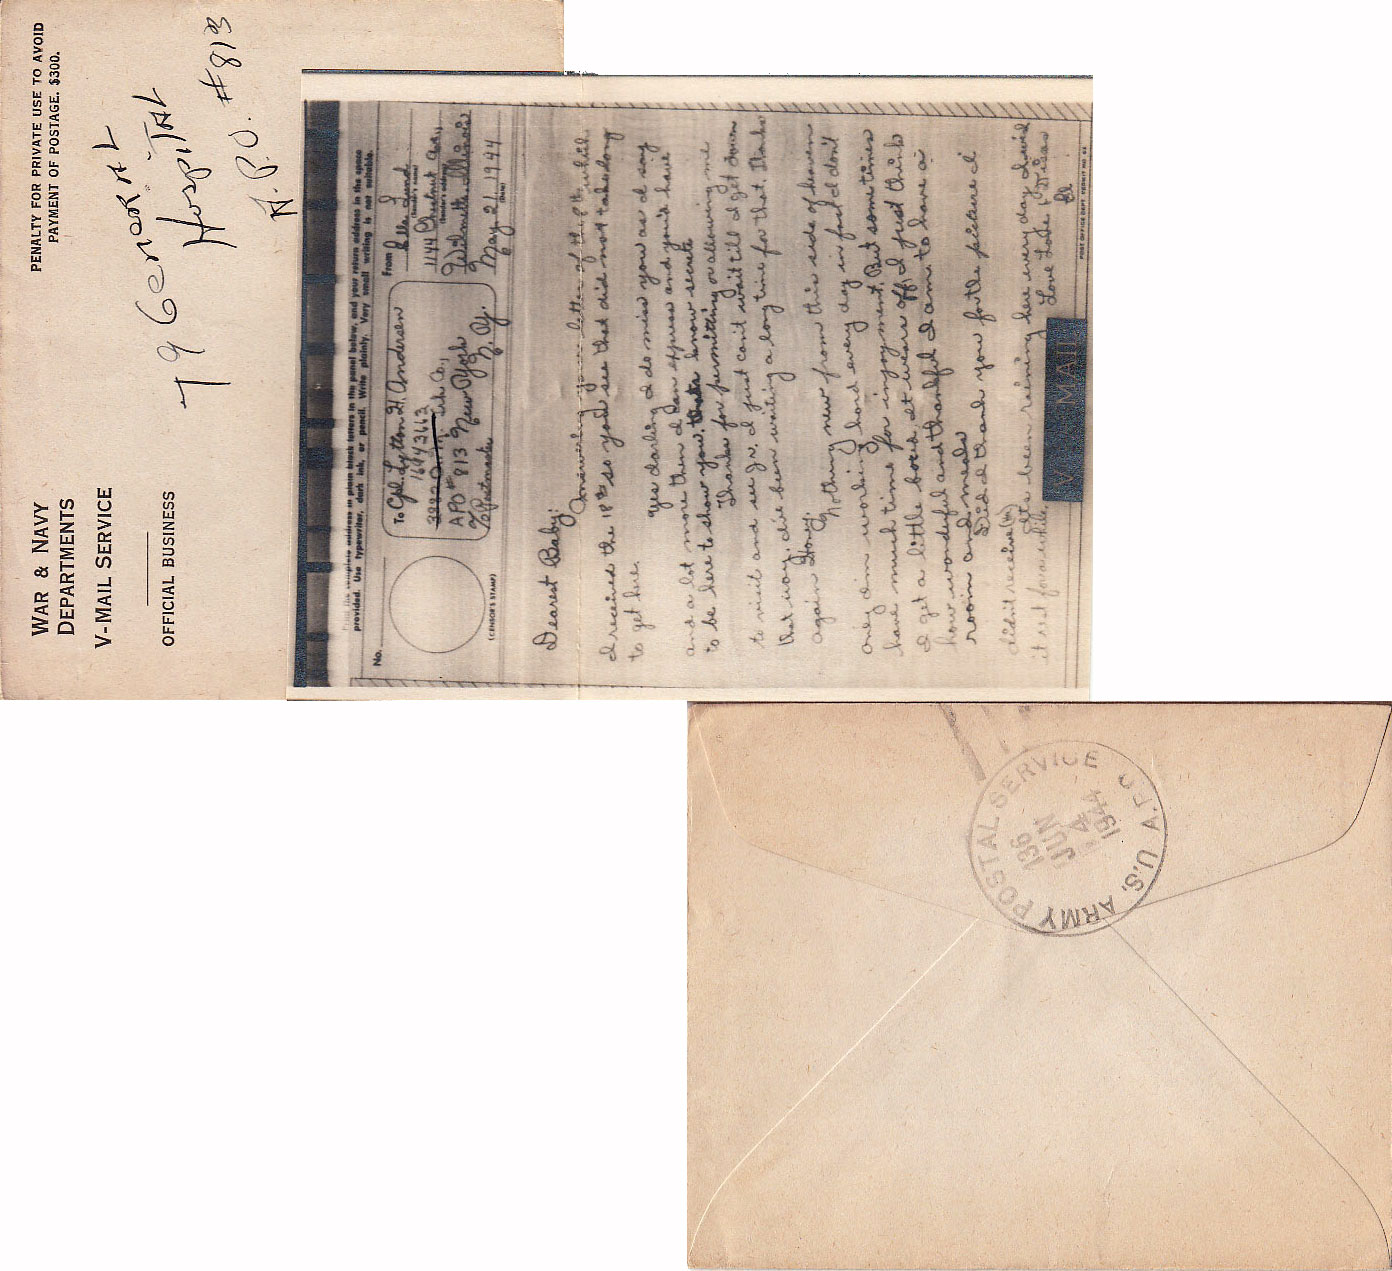 WAR & NAVY
DEPARTMENTS
V-MAIL SERVICE
OFFICIAL BUSINESS
PENALTY FOR PRIVATE USE TO AVOID
PAYMENT OF POSTAGE, $300.
79 General
Hospital
A.P.O. #813
complete address in plain block letters in the panel below, and your return address in the space
provided. Use typewriter, dark ink, or pencil. Write plainly. Very small writing is not suitable.
No.
(CENSOR'S STAMP)
To Cpl. Lytton H. Andersen
16143663
Co.,
APO # 813 New York
% Postmaster N.Y.
From
(Sender's name)
1144 Chestnut Ave.,
(Sender's address)
Wilmette Illinois
May 21, 1944
(Date)
Dearest Baby:
Answering your letter of the 8th which
I received the 18th so you see that did not take long
to get here.
Yes darling I do miss you as I say
and a lot more then I can express and you'd have
to be here to show you. thats know secrete
Thanks for permitting or allowing me
to visit and see Jr. I just can't wait till I get down
that way. I've been waiting a long time for that, Thanks
again Honey.
Nothing new from this side of heaven
only I'm working hard every day in fact I don't
have much time for enjoyment. But sometimes
I get a little bored, it wears off, I just think
how wonderful and thankful I am to have a
room and meals
Did I thank you for the picture I
didn't receive (?)
Its been raining here every day I wish
it rest for awhile. Love Love & Kisses
El
V···-MAIL
POST OFFICE DEPT. PERMIT NO.
U.S. ARMY POSTAL SERVICE A.P.O.
136
JUN
4
1944